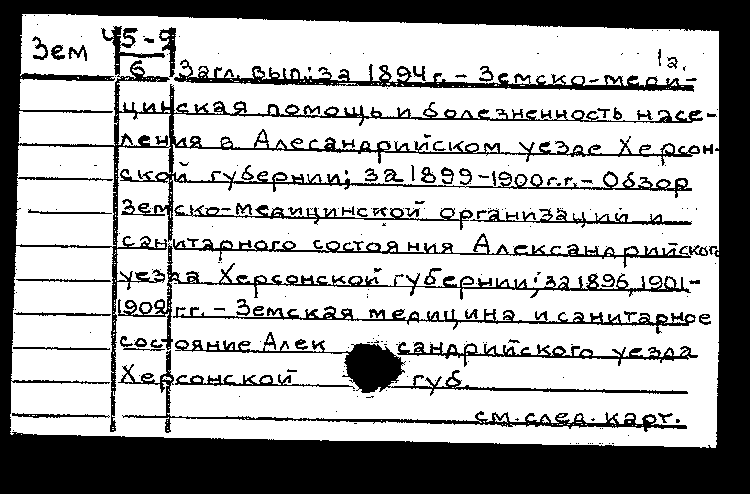 Зем 45-9
6 1а.
Загл. вып.: за 1894 г. - Земско-меди-
цинская помощь и болезненность насе-
ления в Алесандрийском уезде Херсон-
ской губернии; за 1899-1900 г.г. - Обзор
земско-медицинской организации и
санитарного состояния Александрийского
уезда Херсонской губернии; за 1896, 1901-
1902 г.г. - Земская медицина и санитарное
состояние Алек сандрийского уезда
Херсонской губ.
см. след. карт.